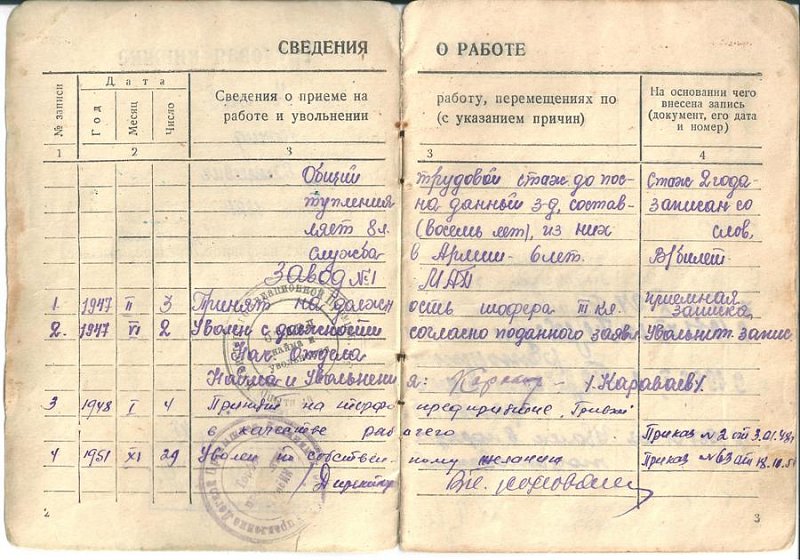 СВЕДЕНИЯ О РАБОТЕ
№ записи
Дата
Год
Месяц
Число
Сведения о приеме на работу, перемещениях по
работе и увольнении (с указанием причин)
На основании чего
внесена запись
(документ, его дата
и номер)
1 2 3 3 4
Общий трудовой стаж до пос- Стаж 2 года-
тупления на данный з-д, состав- записан со
ляет 8 л. (восемь лет), из них слов,
служба в Армии - 6 лет. В/билет
Завод №1 МАП
1. 1947 II 3 Принят на должность шофера III кл. приемная записка
2. 1947 VI 2 Уволен с должности согласно поданного заявл Увольнит. запис.
Нач. Отдела
Найма и Увольнения: /Караваев/.
3 1948 I 4 Принят на торфопредприятие
в качестве рабочего Приказ №2 от 3.01.48
4 1951 XI 29 Уволен по собственному желанию Приказ №63 от
/Директор
2 3